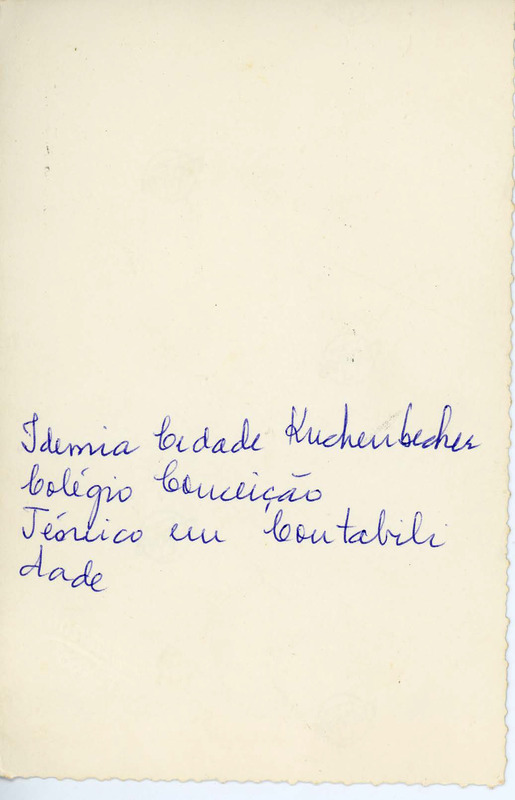 Idemia Cidade Kuchenbecher
Colégio Conceição
Técnico em Contabili
dade